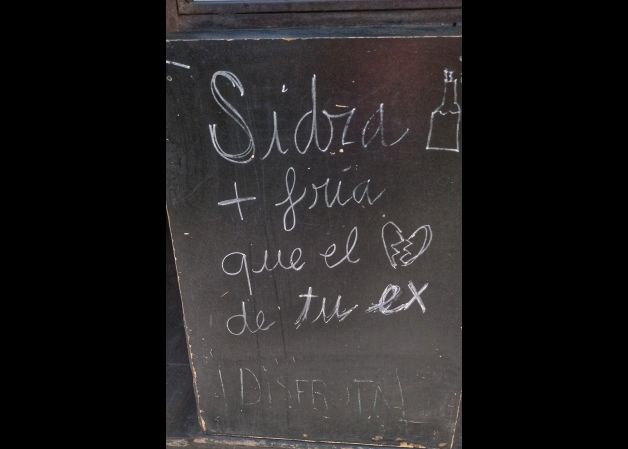 Sidra
+ fría
que el
de tu ex
¡DISFRUTA!